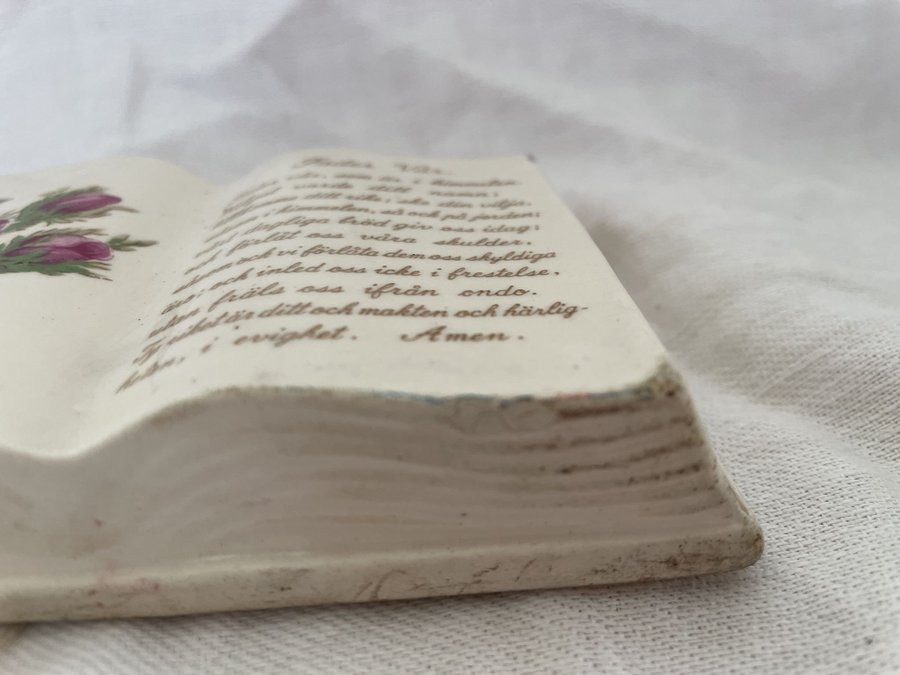 Fader Vår
som är i himmelen.
varde ditt namn;
ditt rike; ske din vilja,
i himmelen, så och på jorden;
dagliga bröd giv oss idag;
förlåt oss våra skulder,
och vi förlåta dem oss skyldiga
äro; och inled oss icke i frestelse,
utan fräls oss ifrån ondo.
Ty riket är ditt och makten och härlig-
heten, i evighet. Amen.